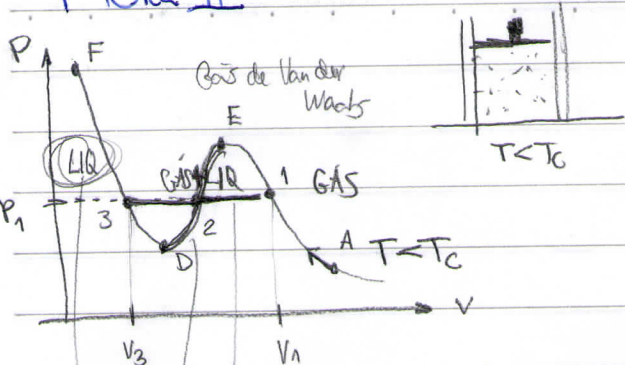 P
F
Gás de Van der
Waals
E
LIQ
GÁS LIQ
1
GÁS
T<Tc
P1
3
2
D
A
T<Tc
V
V3
V1